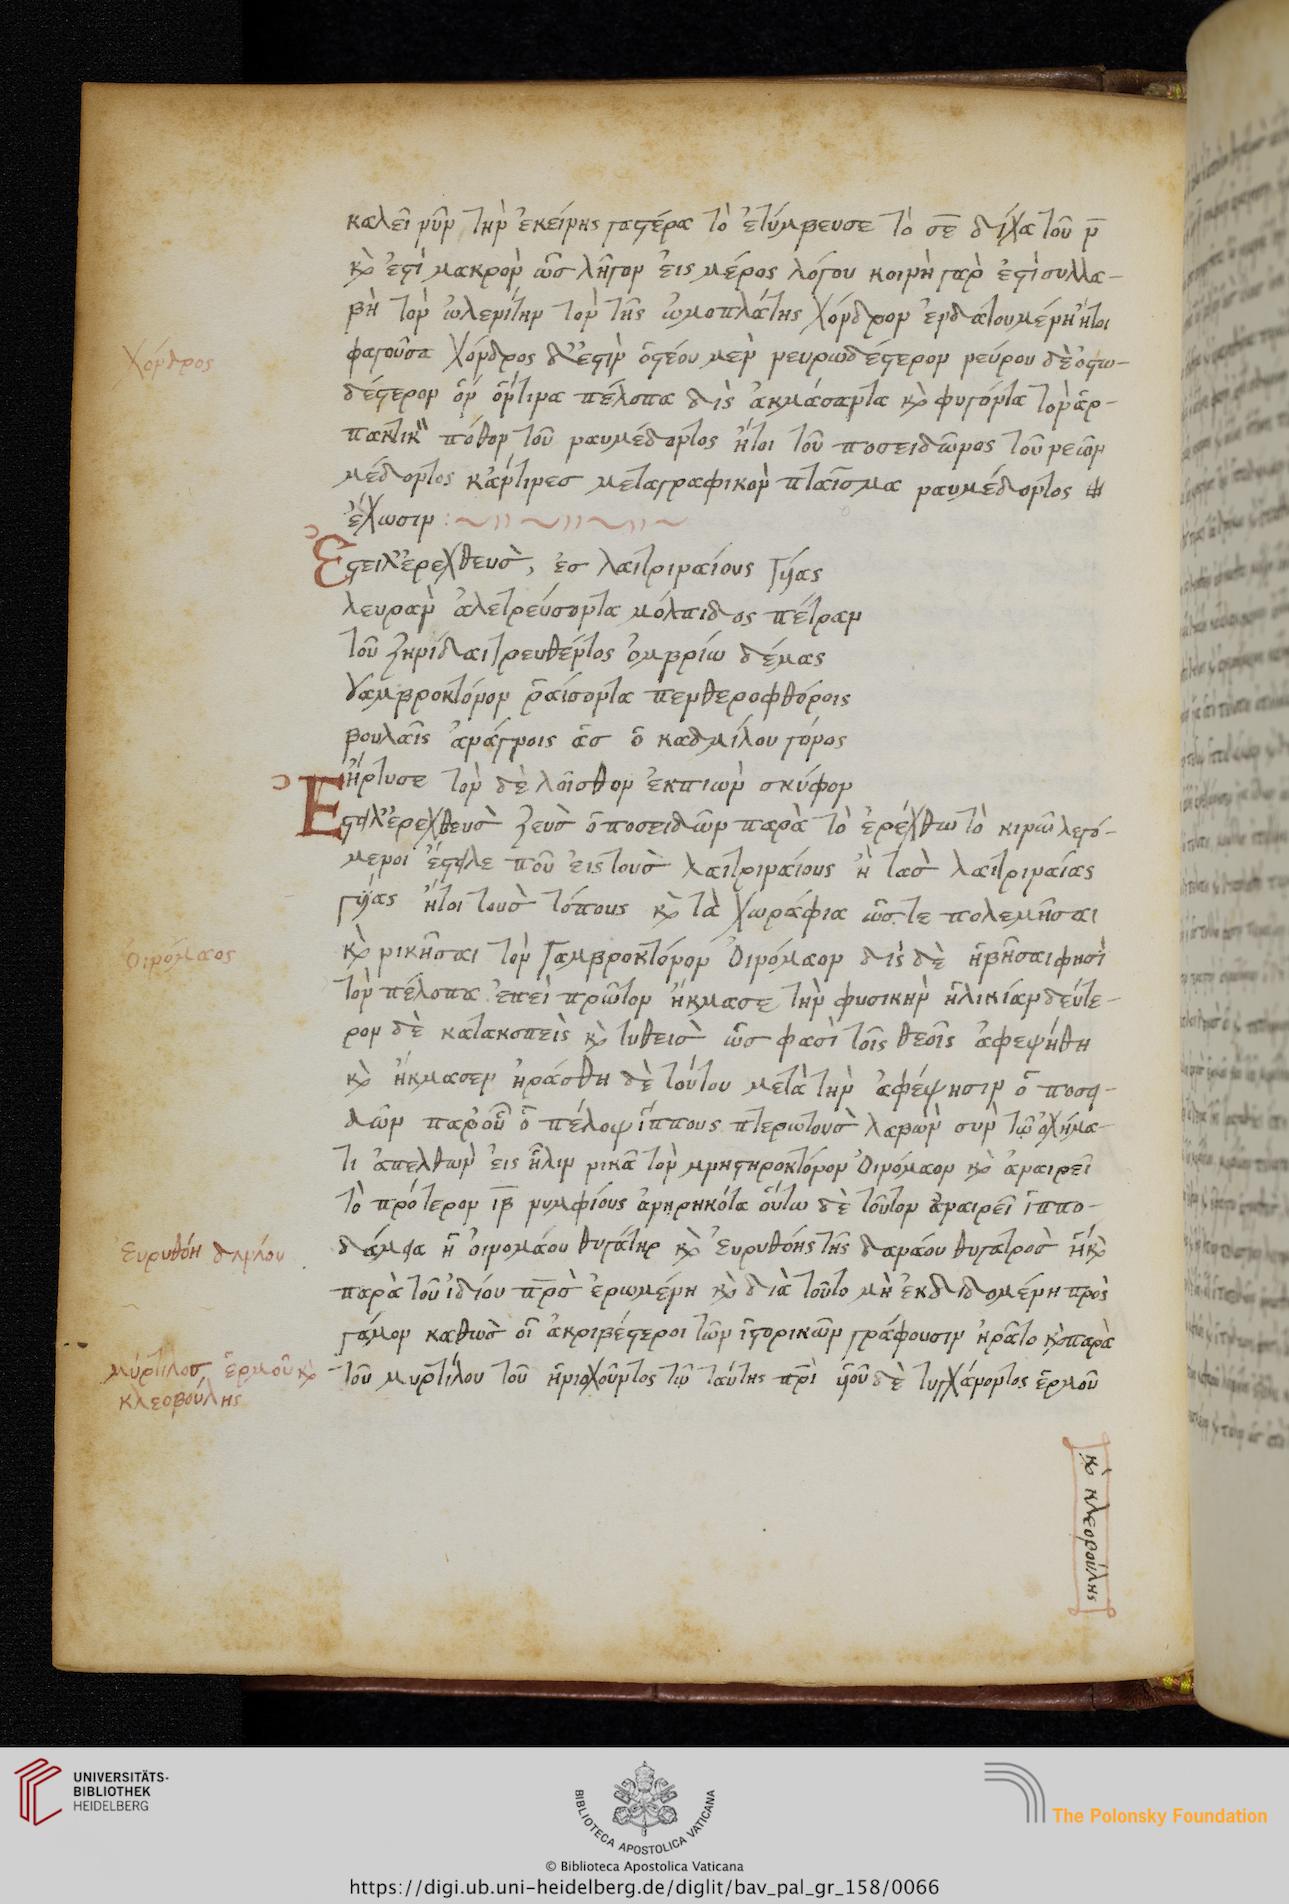 καλεῖ νῦν τὴν ἐκείνης γαστέρα τὸ ἐτύμβευσε τὸ σε δίχα τοῦ ν
καὶ ἐστὶ μακρὸν ὡς λῆγον εἰς μέρος λόγου κοινὴ γὰρ ἐστὶ συλλα-
βὴ τὸν ὠλενίτην τὸν τῆς ὠμοπλάτης χόνδρον ἐνδατουμένη ἤτοι
φαγοῦσα χόνδρος δ' ἐστὶν ὀστέου μὲν νευρωδέστερον νεύρου δὲ ὀστω-
δέστερον ὅν ὅντινα πέλοπα δὶς ἀκμάσαντα καὶ φυγόντα τὸν ἁρ-
πακτικὸν πόθον τοῦ ναυμέδοντος ἤτοι τοῦ ποσειδῶνος τοῦ νεῶν
μέδοντος κἄν τινες μεταγραφικὸν πταῖσμα ναυμέδοντος
ἔχωσιν :
Ἔστειλ' ἐρεχθεὺς, ἐς λαιτριναίους γύας
λευρὰν ἀλετρεύσοντα μόλπιδος πέτραν
τοῦ ζηνὶ δαιτρευθέντος ὀμβρίω δέμας
γαμβροκτόνον ῥαίσοντα πενθεροφθόροις
βουλαῖς ἀνάγνοις ἃς ὁ καδμίλου γόνος
ἤρτυσε τὸν δὲ λοῖσθον ἐκπιὼν σκύφον
Ἔστειλ' ἐρεχθεὺς ζεὺς ὁ ποσειδῶν παρὰ τὸ ἐρέχθω τὸ κινῶ λεγό-
μενοι ἔστειλε ποῦ εἰς τοὺς λαιτριναίους ἢ τὰς λαιτριναίας
γύας ἤτοι τοὺς τόπους καὶ τὰ χωράφια ὥστε πολεμῆσαι
καὶ νικῆσαι τὸν γαμβροκτόνον Οἰνόμαον δὶς δὲ ἡβῆσαι φησὶ
τὸν πέλοπα ἐπεὶ πρῶτον ἤκμασε τὴν φυσικὴν ἡλικίαν δεύτε-
ρον δὲ κατακοπεὶς καὶ τυθεὶς ὥς φασὶ τοῖς θεοῖς ἀφεψήθη
καὶ ἤκμασεν ἠράσθη δὲ τούτου μετὰ τὴν ἀφέψησιν ὁ ποσει-
δῶν παρ' οὗ ὁ πέλοψ ἵππους πτερωτοὺς λαβὼν σὺν τῷ ὀχήμα-
τι ἀπελθὼν εἰς ἦλιν νικᾶ τὸν μνηστηροκτόνον Οἰνόμαον καὶ ἀναιρεῖ
τὸ πρότερον ιβ νυμφίους ἀνῃρηκότα οὕτω δὲ τοῦτον ἀναιρεῖ ἱππο-
δάμεια ἡ οἰνομάου θυγάτηρ καὶ Εὐρυθόης τῆς δαναοῦ θυγατρὸς ἡ καὶ
παρὰ τοῦ ἰδίου πρς ἐρωμένη καὶ διὰ τοῦτο μὴ ἐκδιδομένη πρὸς
γάμον καθὼς οἱ ἀκριβέστεροι τῶν ἱστορικῶν γράφουσιν ἠρᾶτο καὶ παρὰ
τοῦ μυρτίλου τοῦ ἡνιοχοῦντος τῷ ταύτης πρι υἱοῦ δὲ τυγχάνοντος ἑρμοῦ
καὶ κλεοβούλης
χόνδρος
Οἰνόμαος
Εὐρυθόη
μύρτιλος ἑρμοῦ καὶ
κλεοβούλης
UNIVERSITÄTS-
BIBLIOTHEK
HEIDELBERG
BIBLIOTECA APOSTOLICA VATICANA
The Polonsky Foundation
© Biblioteca Apostolica Vaticana
https://digi.ub.uni-heidelberg.de/diglit/bav_pal_gr_158/0066